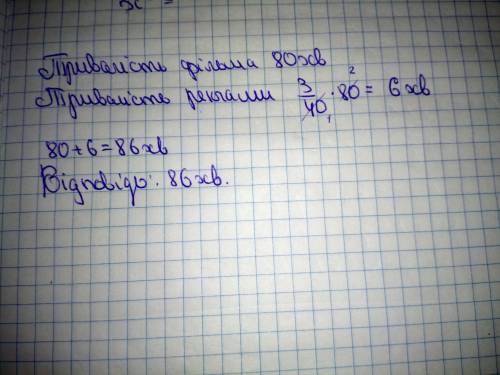 x =
Тривалість фільма 80 хв
Тривалість реклами 3/40 · 80 = 6 хв
80 + 6 = 86 хв
Відповідь: 86 хв.